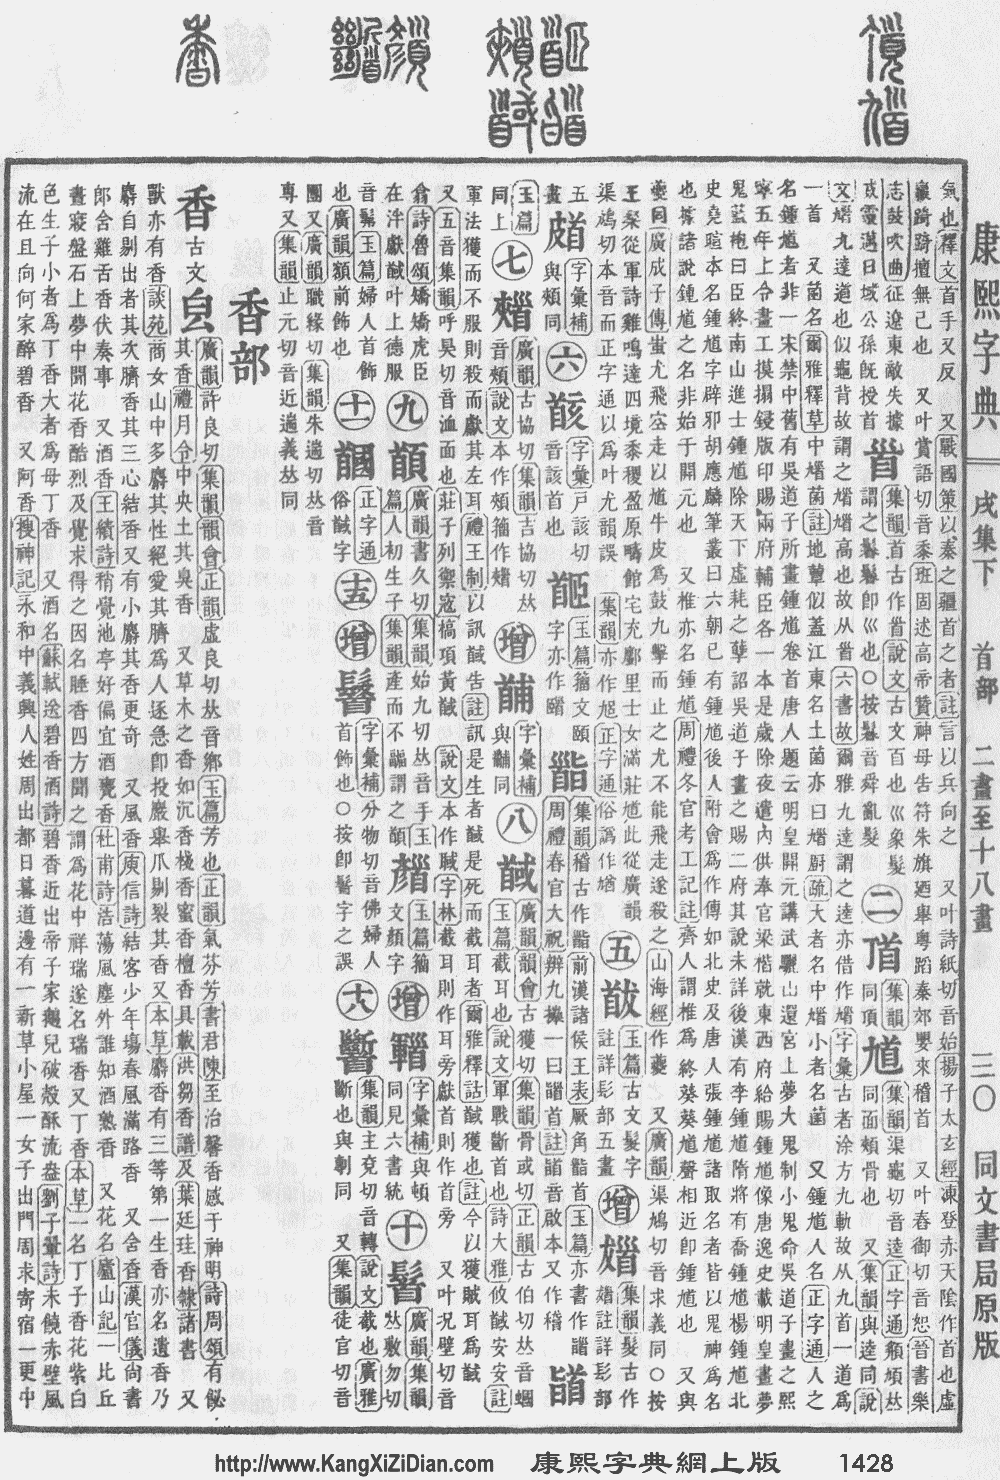 康熙字典 戌集下 首部 二畫至十八畫 三〇 同文書局原版
氣也釋文首手又反 又戰國策以秦之疆首之者註言以兵向之 又叶詩紙切音始揚子太玄經凍登赤天陰作首也虛
巖踦踦擅無己也 又叶賞語切音黍班固述高帝贊神母告符朱旗迺舉粵蹈秦郊嬰來稽首 又叶春御切音恕晉書樂
志鼓吹曲征遼東敵失據
威靈邁日域公孫旣授首
𩠐
集韻首古作𩠐說文古文百也巛象髮
謂之鬊鬊卽巛也○按鬊音舜亂髮
二
𩠑
集韻
同頂
馗
集韻渠龜切音逵正字通頯頄𠀤
同面頰骨也 又集韻與逵同說
文馗九達道也似龜背故謂之馗馗高也故从𩠐六書故爾雅九達謂之逵亦借作馗字彙古者涂方九軌故从九首一道爲
一首 又菌名爾雅釋草中馗菌註地蕈似蓋江東名土菌亦曰馗厨疏大者名中馗小者名菌 又鍾馗人名正字通人之
名鍾馗者非一宋禁中舊有吳道子所畫鍾馗卷首唐人題云明皇開元講武驪山還宮上夢大鬼制小鬼命吳道子畫之熙
寧五年上令畫工摸搨鋟版印賜兩府輔臣各一本是歲除夜遣內供奉官梁楷就東西府給賜鍾馗像唐逸史載明皇晝夢
鬼藍袍曰臣終南山進士鍾馗除天下虛耗之孽詔吳道子畫之賜二府其說未詳後漢有李鍾馗隋將有喬鍾馗楊鍾馗北
史堯暄本名鍾馗字辟邪胡應麟筆叢曰六朝已有鍾馗後人附會爲作傳如北史及唐人張鍾馗諸取名者皆以鬼神爲名
也據諸說鍾馗之名非始于開元也 又椎亦名鍾馗周禮冬官考工記註齊人謂椎爲終葵葵馗聲相近卽鍾馗也 又與
夔同廣成子傳蚩尤飛空走以馗牛皮爲鼓九擊而止之尤不能飛走遂殺之山海經作夔 又廣韻渠鳩切音求義同○按
王粲從軍詩雞鳴達四境黍稷盈原疇館宅充鄽里士女滿莊馗此從廣韻
渠鳩切本音而正字通以爲叶尤韻誤 集韻亦作𩠑正字通俗譌作𩠔
五
䭮
玉篇古文髮字
註詳髟部五畫
增
𩠙
集韻髮古作
𩠙註詳髟部
五
畫
𩠖
字彙補
與頰同
六
䭳
字彙戶該切
音該首也
𩠡
玉篇籀文頤
字亦作𦣞
𩠨
集韻稽古作𩒨前漢諸侯王表厥角𩒨首玉篇亦書作𩠨
周禮春官大祝辨九𢷎一曰𩠨首註𩠨音啟本又作稽
𩠐
玉篇
同上
七
䭿
廣韻古協切集韻吉協切𠀤
音頰說文本作頰籀作䭿
增
䩉
字彙補
與䩉同
八
馘
廣韻韻會古獲切集韻骨或切正韻古伯切𠀤音蟈
玉篇截耳也說文軍戰斷首也詩大雅攸馘安安註
軍法獲而不服則殺而獻其左耳禮王制以訊馘吿註訊是生者馘是死而截耳者爾雅釋詁馘獲也註今以獲賊耳爲馘
又五音集韻呼昊切音洫面也莊子列禦寇槁項黃馘 說文本作聝字林截耳則作耳旁獻首則作首旁 又叶况壁切音
翕詩魯頌矯矯虎臣
在泮獻馘叶上德服
九
䭭
廣韻書久切集韻始九切𠀤音手玉
篇人初生子集韻產而不䶪謂之䭭
顏
玉篇籀
文顏字
增
𩠴
字彙補與頓
同見六書統
十
𩠵
廣韻集韻
𠀤敷勿切
音髴玉篇婦人首飾
也廣韻額前飾也
十一
𩠹
正字通
俗馘字
十五
增
𩡀
字彙補分物切音佛婦人
首飾也○按卽𩠵字之誤
十八
𩡁
集韻主兗切音轉說文截也廣雅
斷也與剸同 又集韻徒官切音
團又廣韻職緣切集韻朱遄切𠀤音
專又集韻止元切音近遄義𠀤同
香部
香
古文
皀
廣韻許良切集韻韻會正韻虛良切𠀤音鄉玉篇芳也正韻氣芬芳書君陳至治馨香感于神明詩周頌有飶
其香禮月令中央土其臭香 又草木之香如沉香棧香蜜香檀香具載洪芻香譜及葉廷珪香錄諸書 又
獸亦有香談苑商女山中多麝其性絕愛其臍爲人逐急卽投巖舉爪剔裂其香又本草麝香有三等第一生香亦名遺香乃
麝自剔出者其次臍香其三心結香又有小麝其香更奇 又風香庾信詩結客少年場春風滿路香 又舍香漢官儀尙書
郞舍雞舌香伏奏事 又酒香王績詩稍覺池亭好偏宜酒甕香杜甫詩浩蕩風塵外誰知酒熟香 又花名廬山記一比丘
晝寢盤石上夢中聞花香酷烈及覺求得之因名睡香四方聞之謂爲花中祥瑞遂名瑞香又丁香本草一名丁子香花紫白
色生子小者爲丁香大者爲母丁香 又酒名蘇軾送碧香酒詩碧香近出帝子家鵝兒破殼酥流盎劉子翬詩未饒赤壁風
流在且向何家醉碧香 又阿香搜神記永和中義興人姓周出都日暮道邊有一新草小屋一女子出門周求寄宿一更中
http://www.KangXiZiDian.com 康熙字典網上版 1428